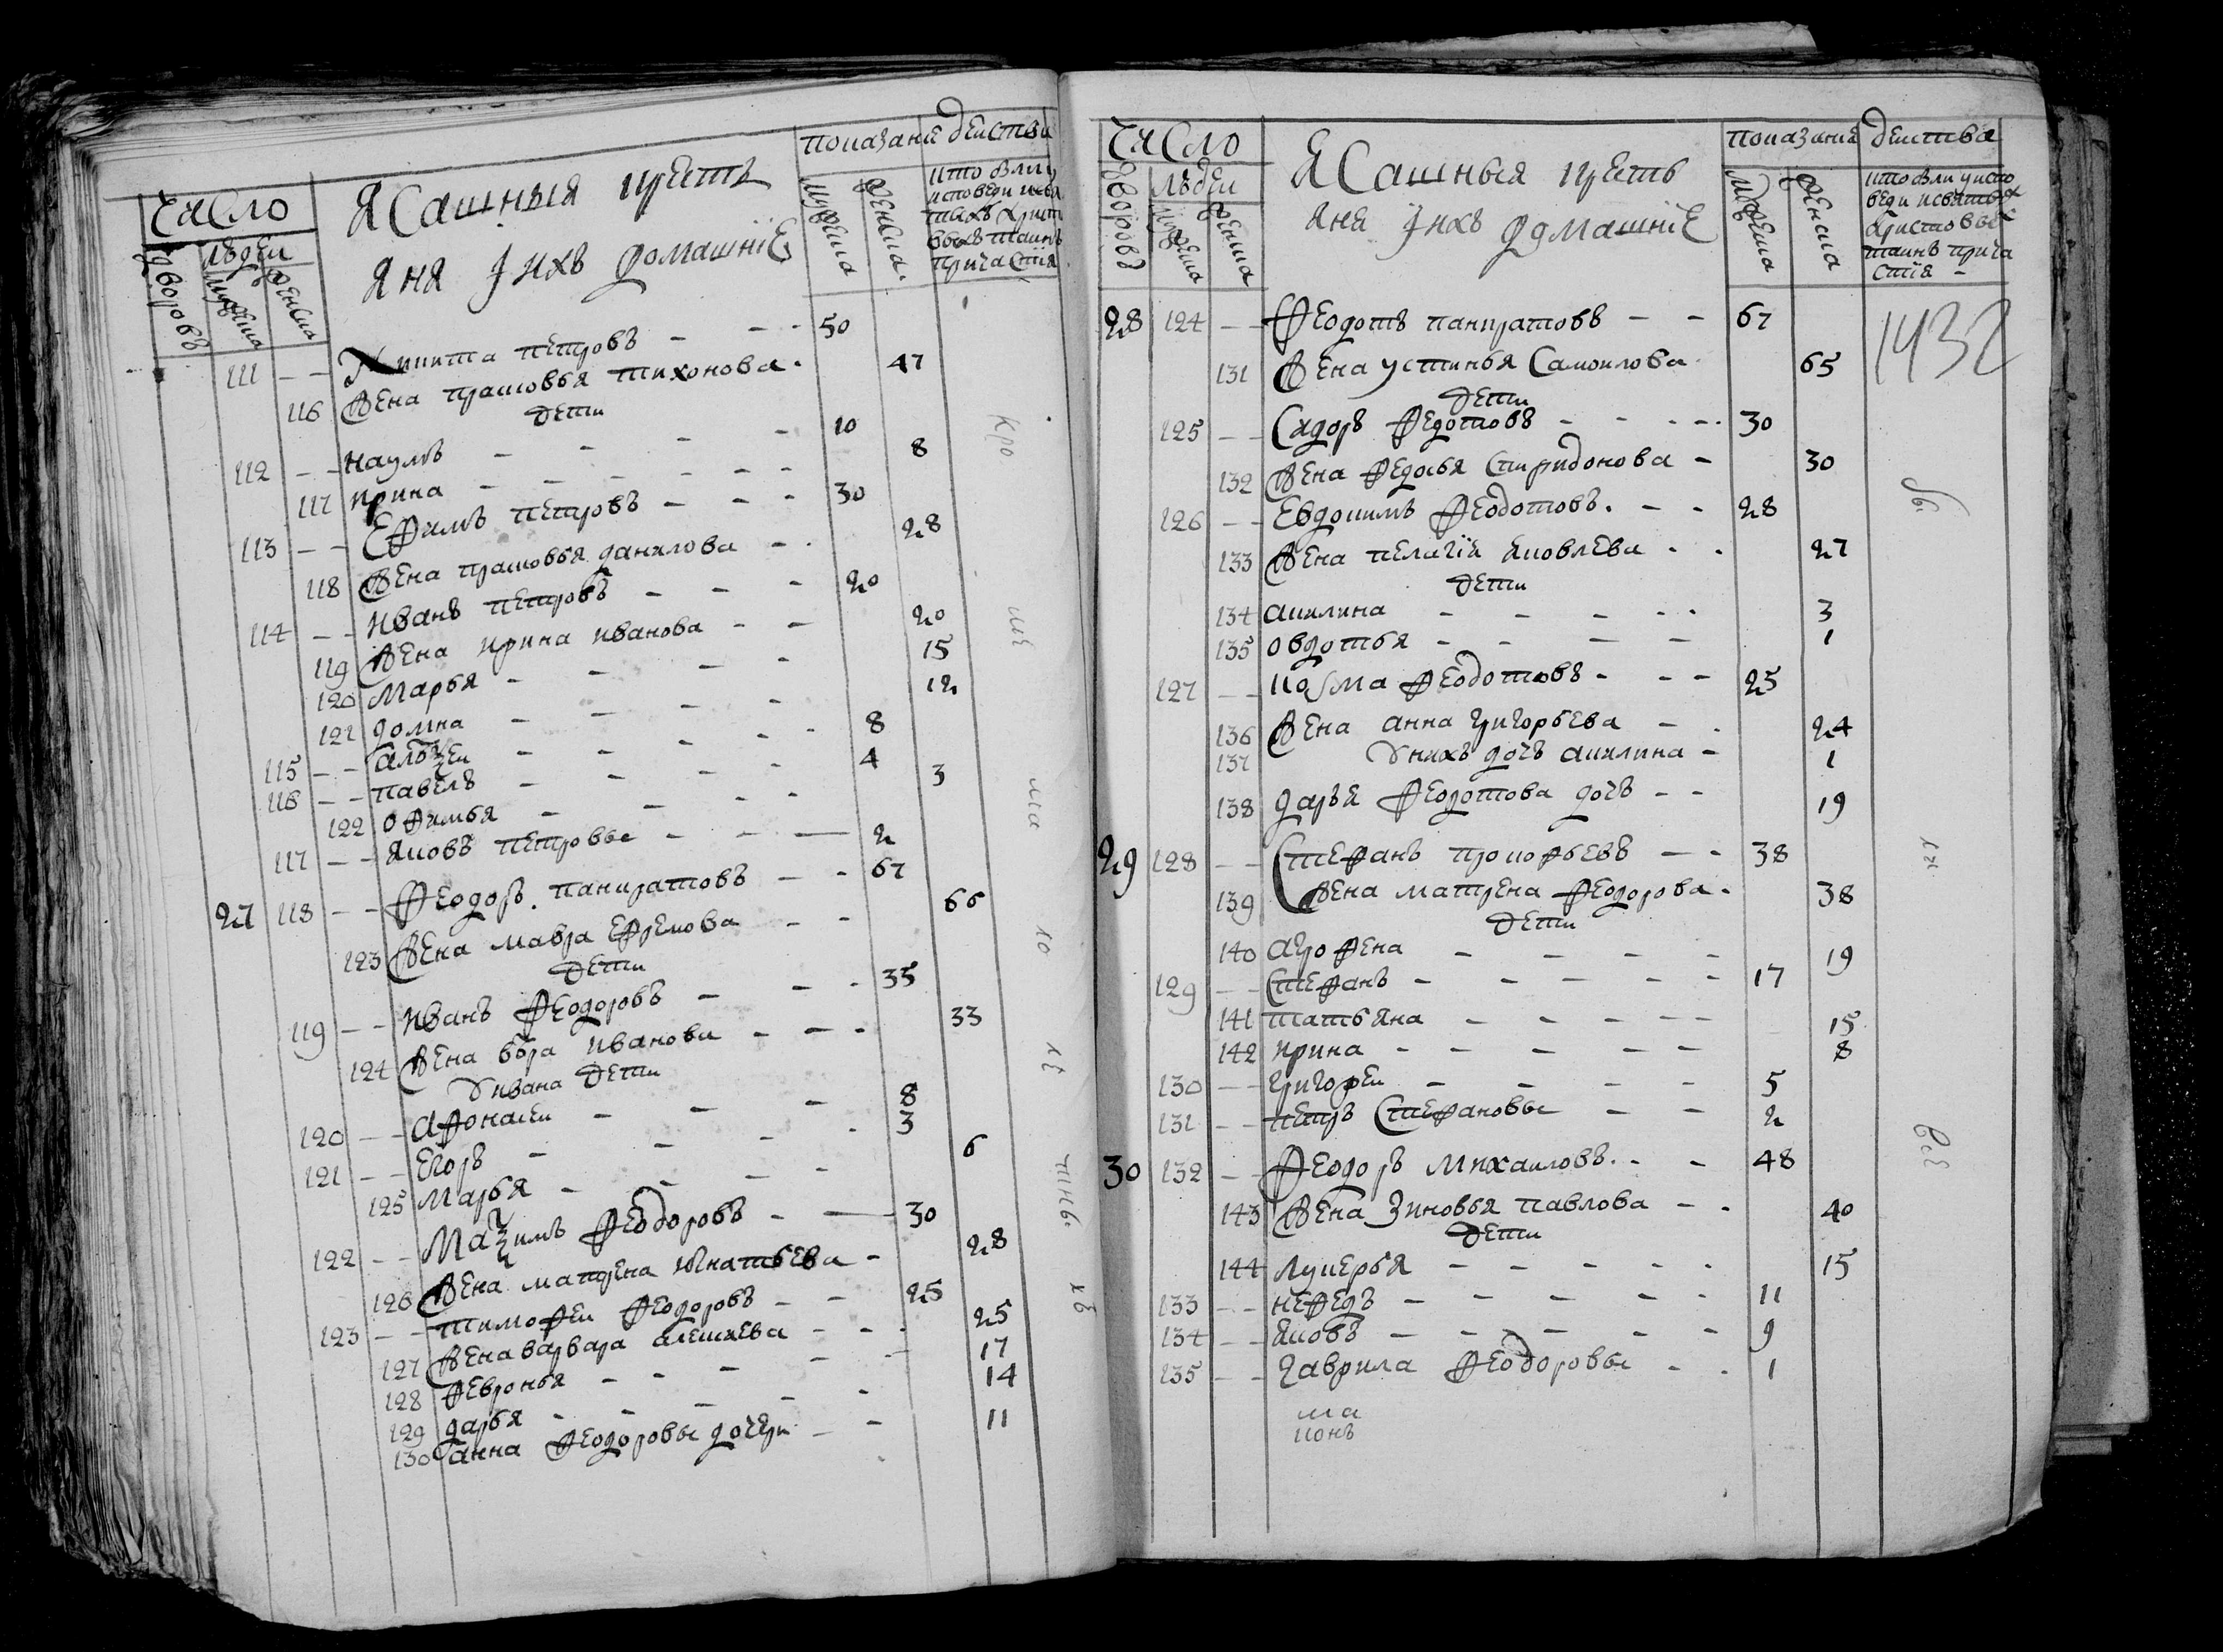 Число
Ясашныя крестя
яня и ихъ домашние
показание
действа
Дворовъ
людеи
мужеска
женска
мужеска
женска
кто были у
исповеди и свя
тыхъ Христо
выхъ таинъ
причастия
111 - - Никита петровъ - - - 50
116 Жена прасковья тихонова. 47
дети
112 - - наумъ - - - 10
117 ирина - - - 8
113 - - Ефимъ петровъ - - - 30
118 Жена прасковья данилова - - 28
114 - - иванъ петровъ - - - 20
119 Жена ирина иванова - - 20
120 Марья - - - 15
121 домна - - - 12
115 - - алеѯеи - - - 8
116 - - павелъ - - - 4
122 офимья - - - 3
117 - - яковъ петровы - - - 2
27 118 - - Феодоръ панкратовъ - - 67
123 Жена мавра Ефремова - - 66
дети
119 - - иванъ Феодоровъ - - - 35
124 Жена вера иванова - - - 33
у ивана дети
120 - - афонасеи - - - 8
121 - - Егоръ - - - 3
125 Марья - - - 6
122 - - Маѯимъ Феодоровъ - - 30
126 Жена матрена игнатьева - 28
123 - - тимофеи Феодоровъ - - 25
127 Жена варвара алексеева - - 25
128 Февронья - - - 17
129 дарья - - - 14
130 анна Феодоровы дочери - - 11
Число
Ясашныя кресть
яня и ихъ домашние
показания
действа
Дворовъ
людеи
мужеска
женска
мужеска
женска
кто были у испо
веди и святыхъ
Христовыхъ
таинъ прича
стия -
1432
28 124 - - Феодотъ панкратовъ - - 67
131 Жена устинья Самоилова 65
дети
125 - - Сидоръ Федотовъ - - - 30
132 Жена Федосья Спиридонова - 30
126 - - Евдокимъ Феодотовъ. - - 28
133 Жена пелагия яковлева - - 27
дети
134 акилина - - - - 3
135 овдотья - - - - 1
127 - - козма Феодотовъ - - - 25
136 Жена анна григорьева - - 24
137 у нихъ дочь акилина - 1
138 дарья Феодотова дочь - - 19
29 128 - - Стефанъ прокофьевъ - - 38
139 Жена матрена Феодорова - 38
дети
140 агрофена - - - - 19
129 - - Стефанъ - - - - 17
141 татьяна - - - - 15
142 ирина - - - - 8
130 - - григореи - - - - 5
131 - - петръ Стефановы - - 2
30 132 - - Феодоръ михаиловъ. - - 48
143 Жена Зиновья павлова - - 40
дети
144 лукерья - - - - 15
133 - - неФедъ - - - - 11
134 - - яковъ - - - - 9
135 - - гаврила Феодоровы - - 1